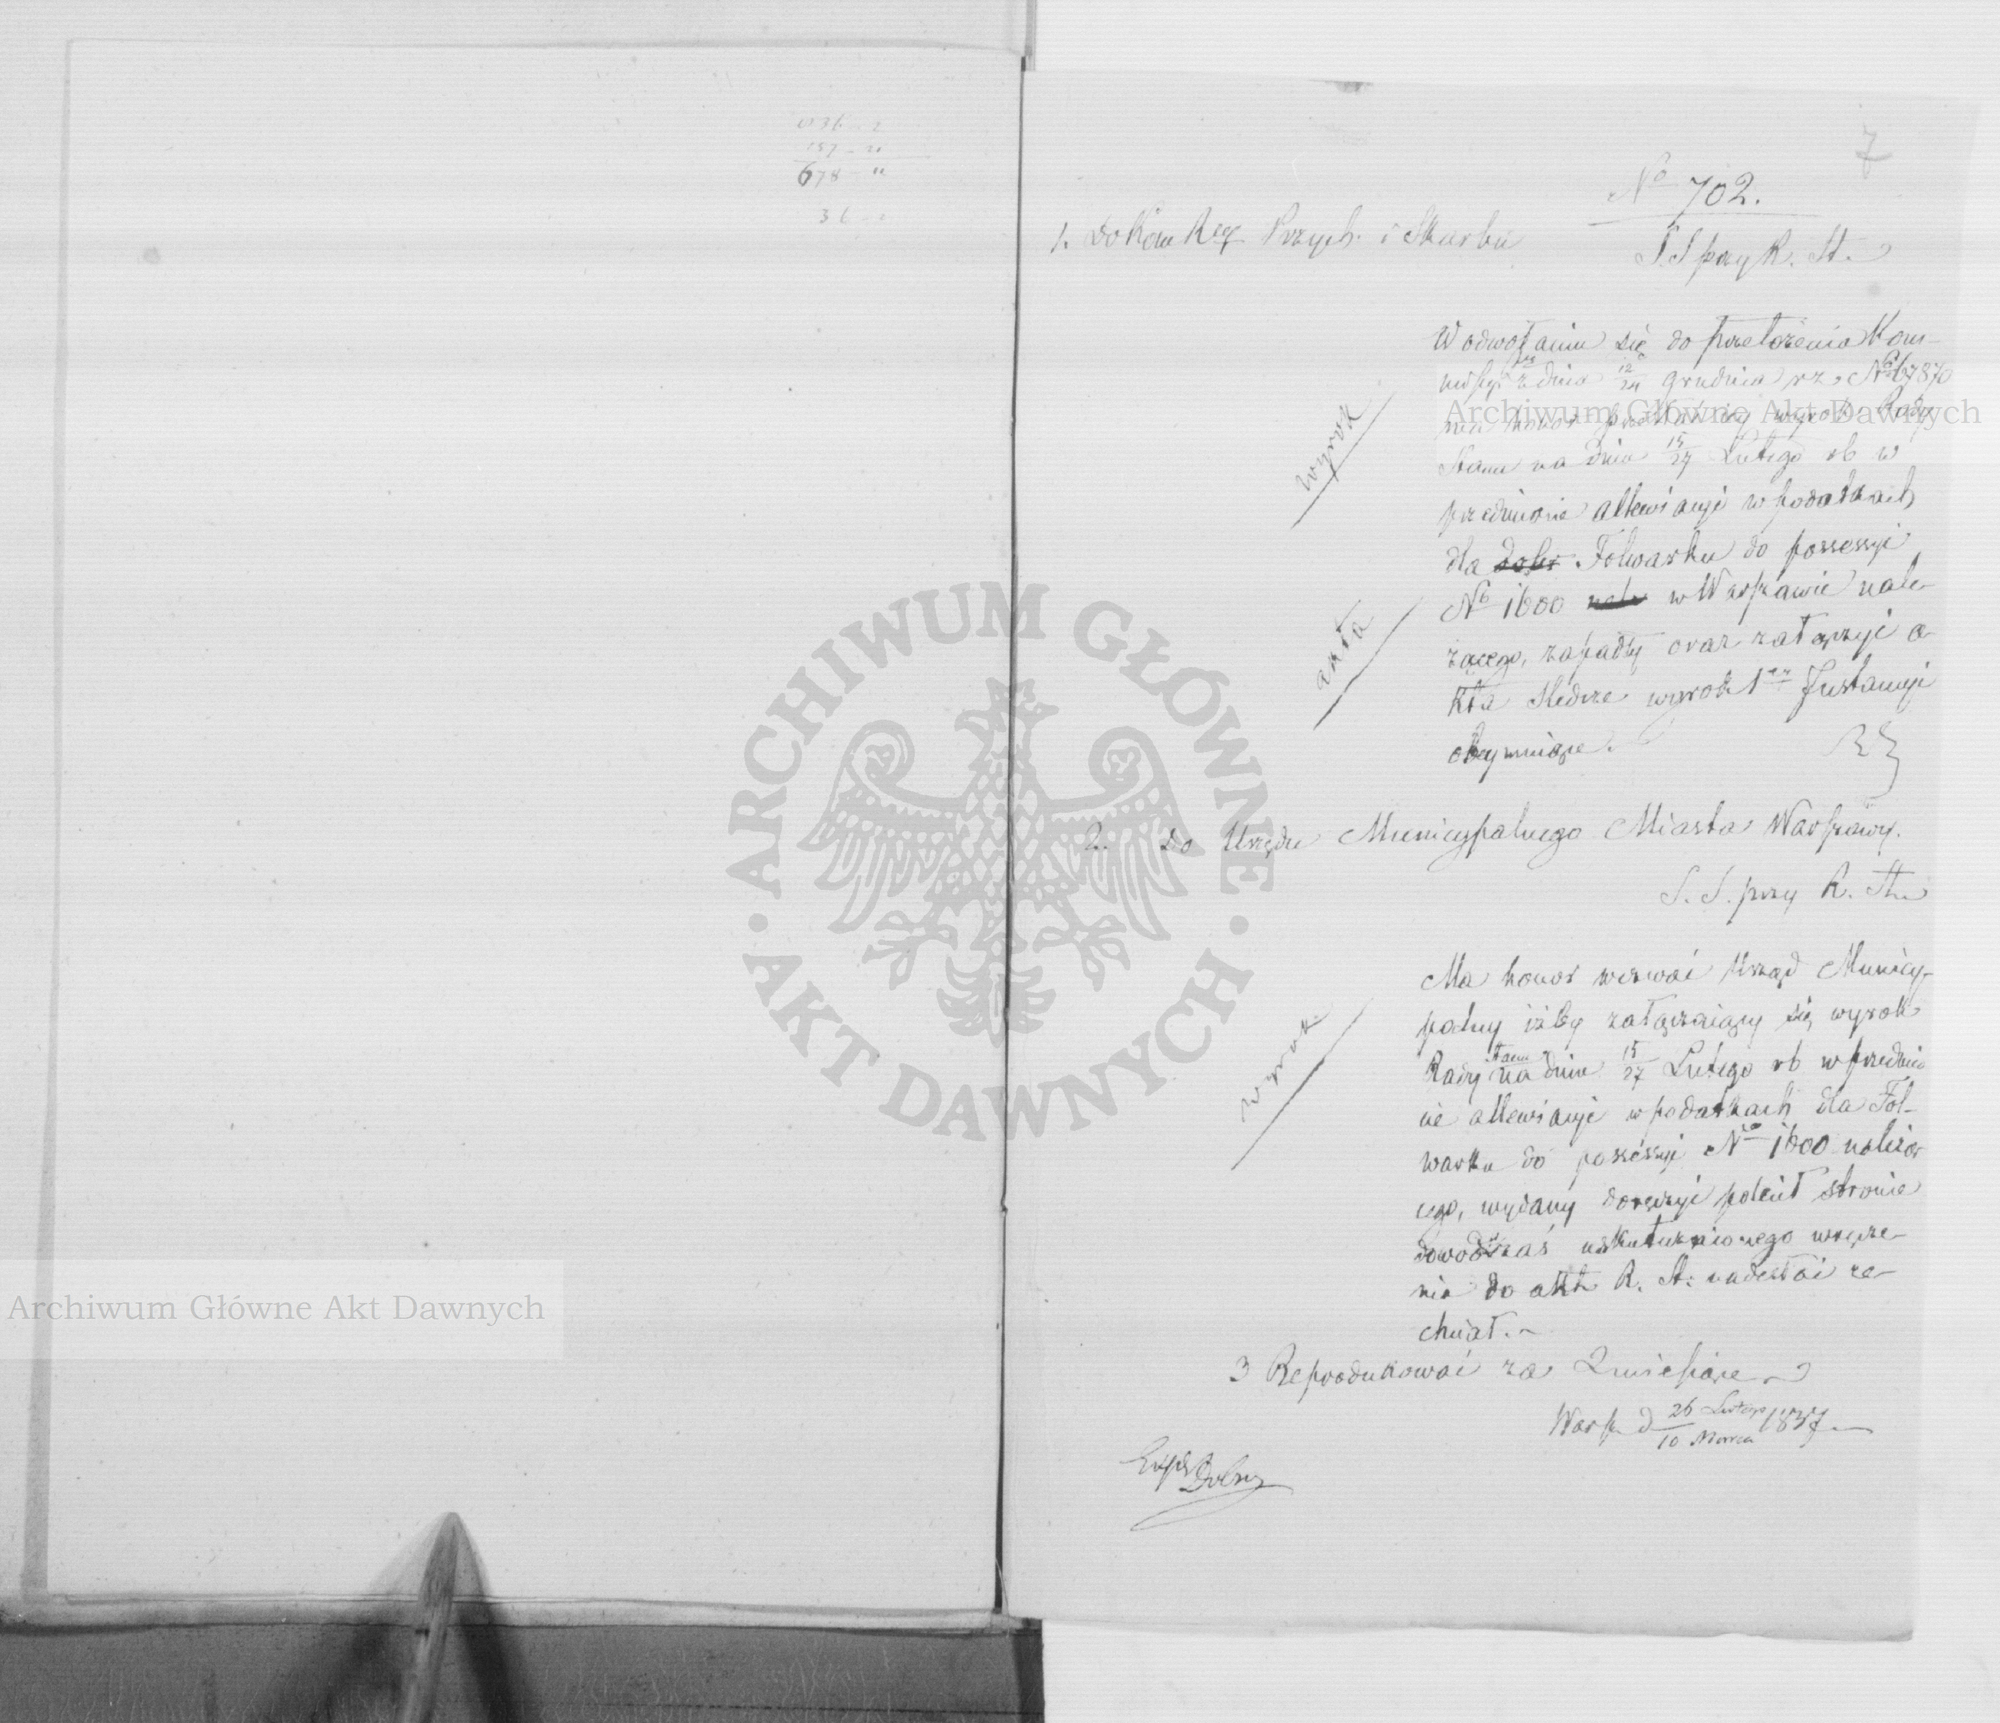 678 - "
7
No 702.
1. Do Kom Rzą Przych. i Skarbu
S. S przy R. St.
W odwołaniu się do przełożenia Kom-
missyi z dnia 12/24 grudnia rz. No 67870
ma honor przesłać wyrok Rady
Stanu na dniu 15/27 Lutego rb w
przedmiocie allewiacyi w podatkach
dla Folwarku do possessyi
No 1600 w Warszawie nale-
żącego, zapadły oraz załączyć a-
kta śledcze wyrok 1ey Instancyi
obeymujące.
wyrok
akta
2. Do Urzędu Municypalnego Miasta Warszawy.
S. S. przy R. St.
Ma honor wezwać Urząd Municy-
palny iżby załączaiący się wyrok
Rady Stanu na dniu 15/27 Lutego rb w przedmio
cie allewiacyi w podatkach dla Fol-
warku do possessyi No 1600 należą
cego, wydany doręczyć polecił stronie
dowód zaś uskutecznionego wręcze-
nia do akt R. St. nadesłać ze-
chciał.
wyrok.
3 Reprodukować za 2 miesiące
Warsz. d 26 Lutego/10 Marca 1837
Archiwum Główne Akt Dawnych
Archiwum Główne Akt Dawnych
ARCHIWUM GŁÓWNE
AKT DAWNYCH